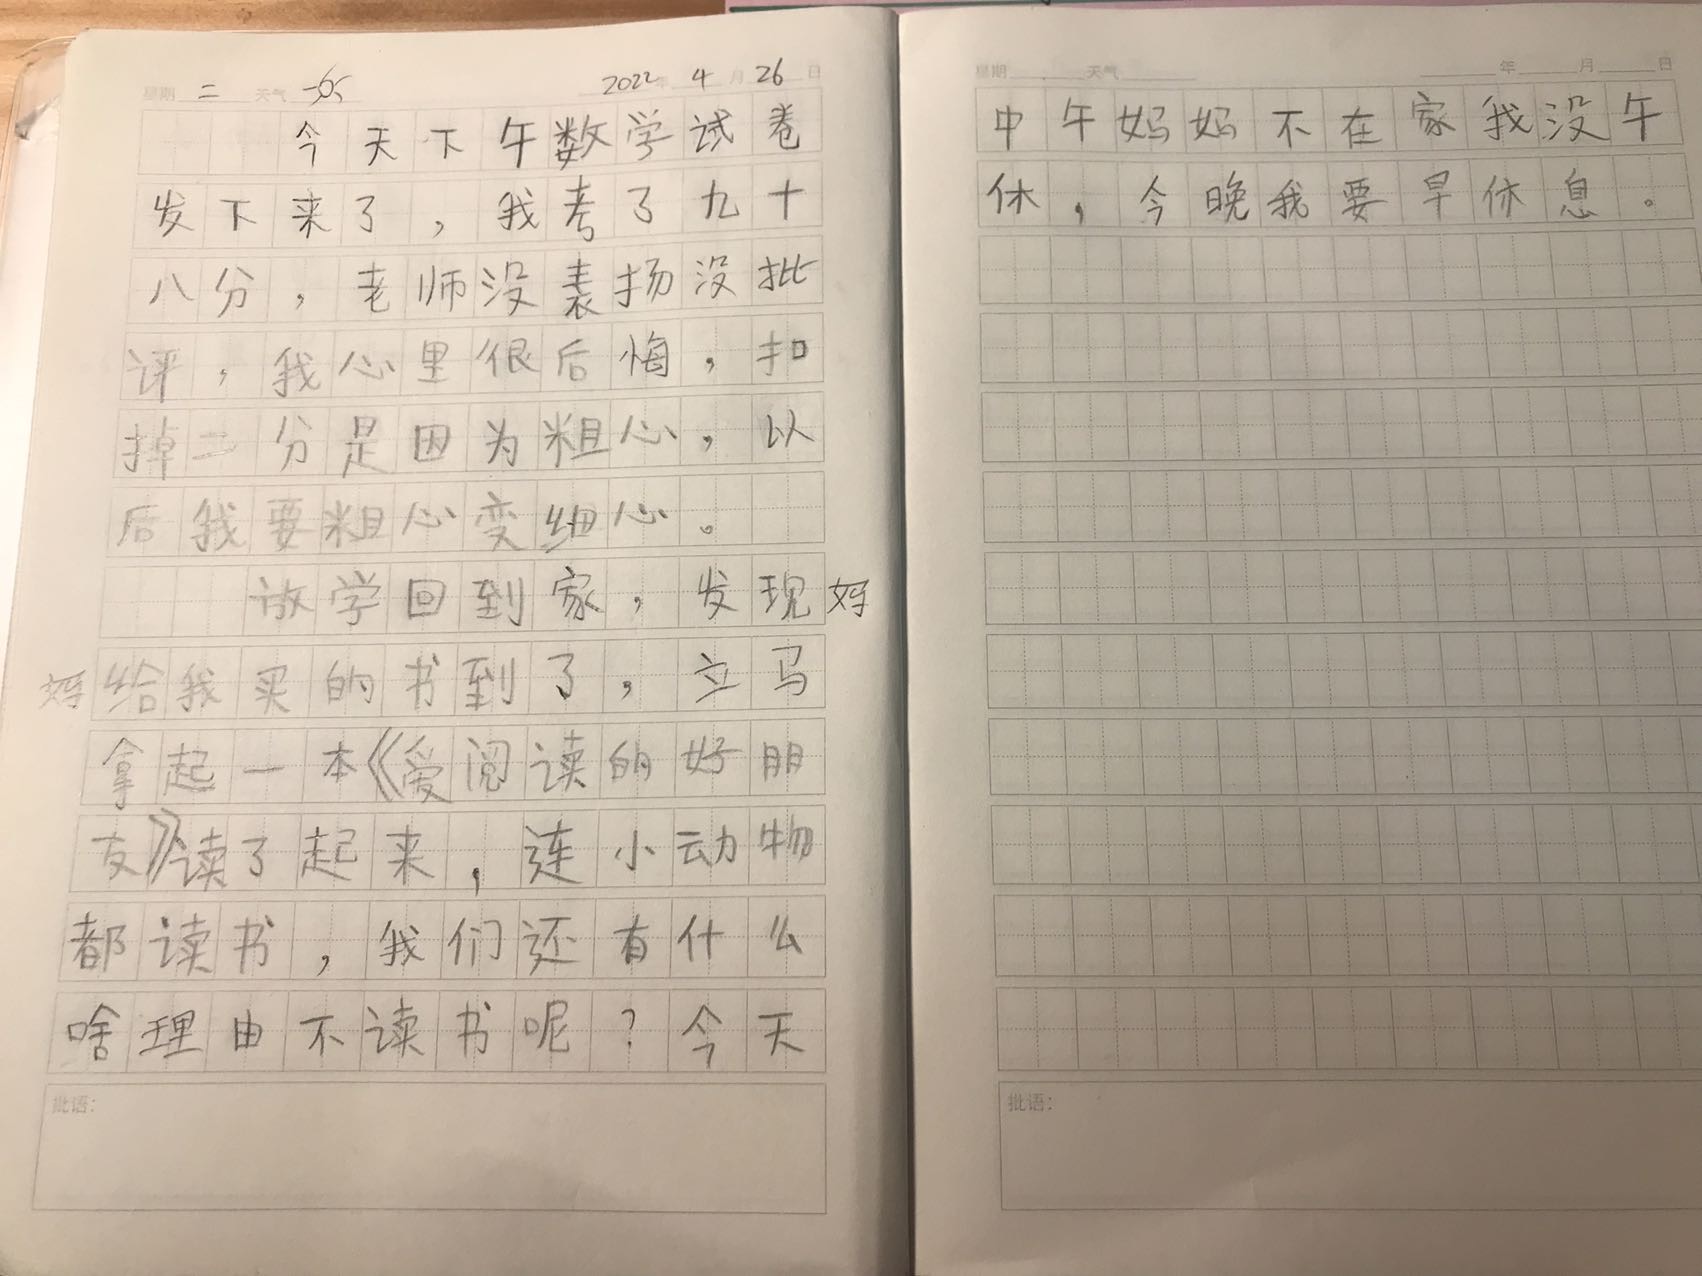 星期 二 天气 2022年 4 月 26 日
今天下午数学试卷
发下来了，我考了九十
八分，老师没表扬没批
评，我心里很后悔，扣
掉二分是因为粗心，以
后我要粗心变细心。
放学回到家，发现妈
妈给我买的书到了，立马
拿起一本《爱阅读的好朋
友》读了起来，连小动物
都读书，我们还有什么
啥理由不读书呢？今天
批语：
星期 天气 年 月 日
中午妈妈不在家我没午
休，今晚我要早休息。
批语：